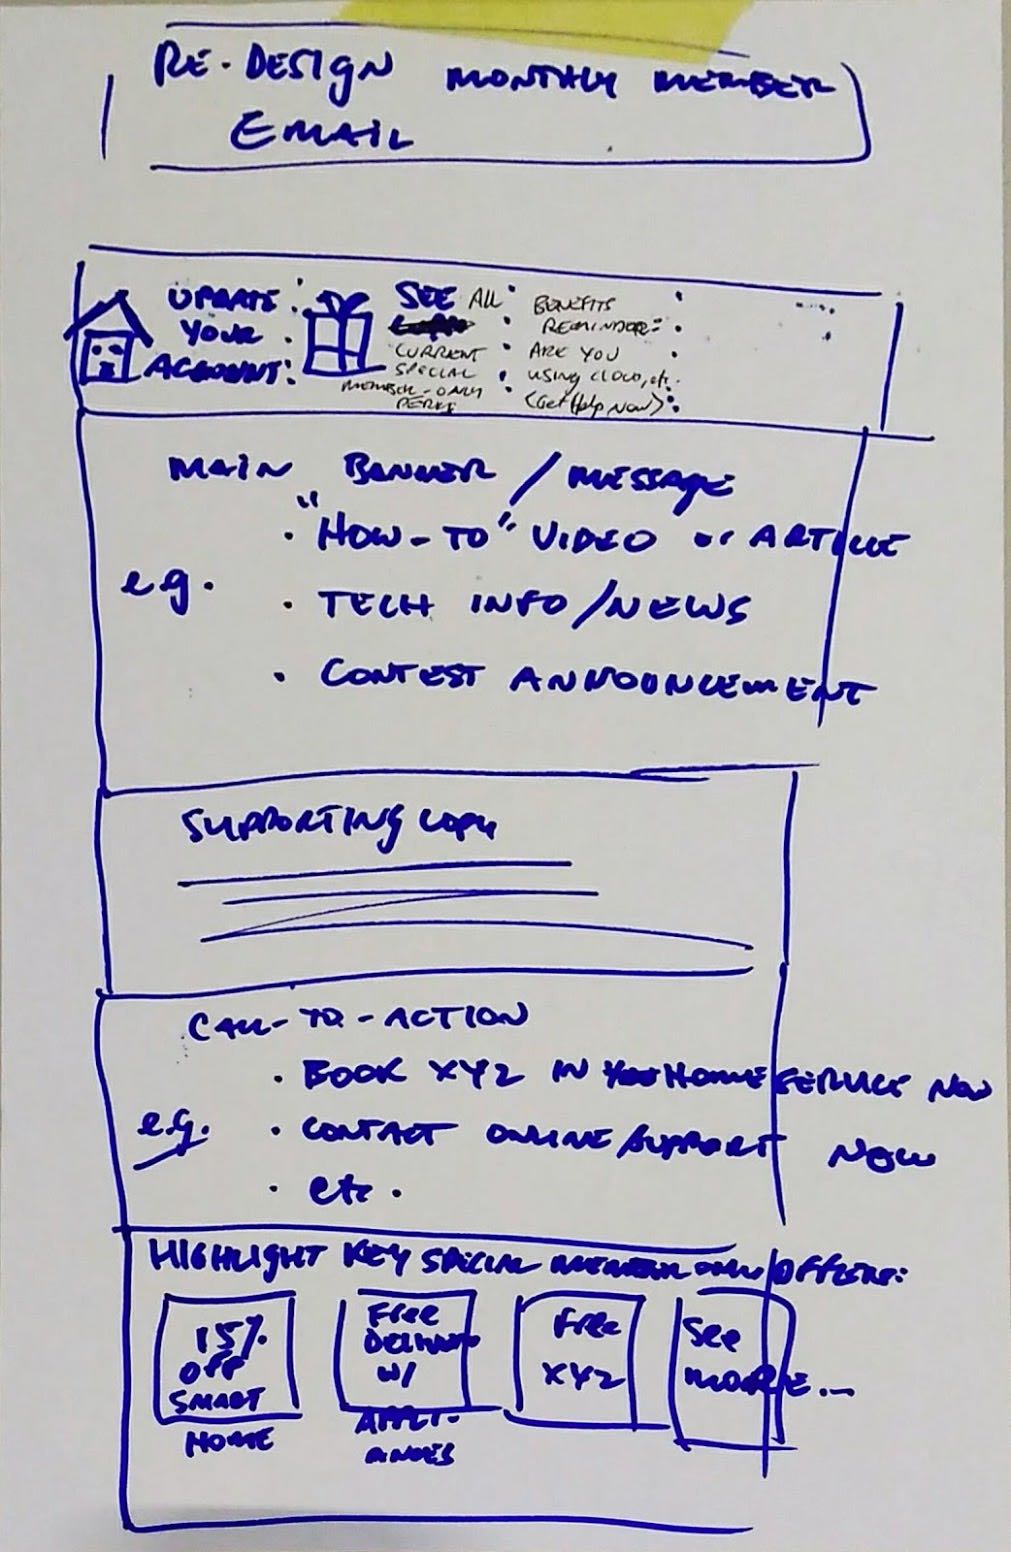 RE-DESIGN MONTHLY MEMBER
EMAIL
UPDATE
YOUR
ACCOUNT
SEE ALL
CURRENT
SPECIAL
MEMBER-ONLY
PERKS
BENEFITS
REMINDER:
ARE YOU
USING CLOUD, etc.
<Get Help Now>
MAIN BANNER / MESSAGE
e.g.
• "HOW-TO" VIDEO or ARTICLE
• TECH INFO/NEWS
• CONTEST ANNOUNCEMENT
SUPPORTING COPY
CALL-TO-ACTION
e.g.
• BOOK XYZ IN HOME SERVICE NOW
• CONTACT ONLINE/SUPPORT NOW
• etc.
HIGHLIGHT KEY SPECIAL MEMBER ONLY OFFERS:
15%
OFF
SMART
HOME
Free
DELIVERY
W/
APPLI-
ANCES
Free
XYZ
See
MORE...